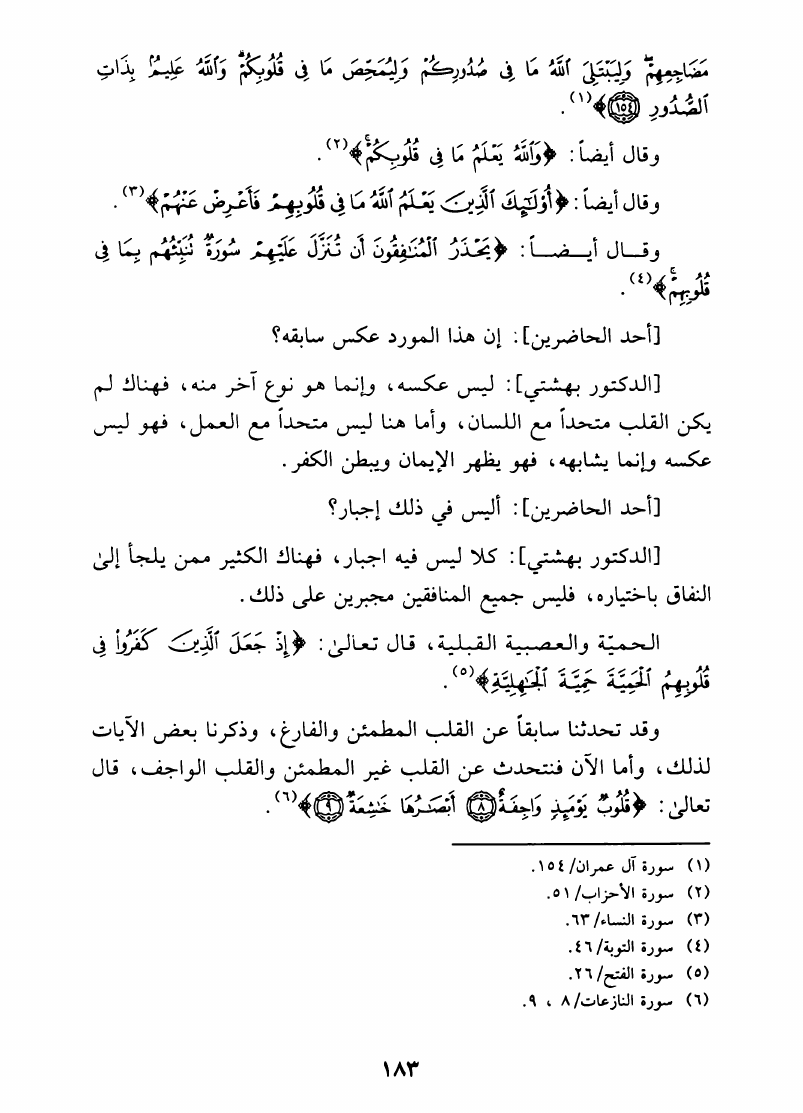 مَضَاجِعِهِمْ ۖ وَلِيَبْتَلِيَ ٱللَّهُ مَا فِى صُدُورِكُمْ وَلِيُمَحِّصَ مَا فِى قُلُوبِكُمْ ۗ وَٱللَّهُ عَلِيمٌۢ بِذَاتِ
ٱلصُّدُورِ ١٥٤﴾(١).
وقال أيضاً: ﴿وَٱللَّهُ يَعْلَمُ مَا فِى قُلُوبِكُمْ ۚ﴾(٢).
وقال أيضاً: ﴿أُوْلَٰٓئِكَ ٱلَّذِينَ يَعْلَمُ ٱللَّهُ مَا فِى قُلُوبِهِمْ فَأَعْرِضْ عَنْهُمْ﴾(٣).
وقـــال أيــضــاً: ﴿يَحْذَرُ ٱلْمُنَٰفِقُونَ أَن تُنَزَّلَ عَلَيْهِمْ سُورَةٌ تُنَبِّئُهُم بِمَا فِى
قُلُوبِهِمْ ۚ﴾(٤).
[أحد الحاضرين]: إن هذا المورد عكس سابقه؟
[الدكتور بهشتي]: ليس عكسه، وإنما هو نوع آخر منه، فهناك لم
يكن القلب متحداً مع اللسان، وأما هنا ليس متحداً مع العمل، فهو ليس
عكسه وإنما يشابهه، فهو يظهر الإيمان ويبطن الكفر.
[أحد الحاضرين]: أليس في ذلك إجبار؟
[الدكتور بهشتي]: كلا ليس فيه اجبار، فهناك الكثير ممن يلجأ إلىٰ
النفاق باختياره، فليس جميع المنافقين مجبرين على ذلك.
الحميّة والعصبية القبلية، قال تعالىٰ: ﴿إِذْ جَعَلَ ٱلَّذِينَ كَفَرُوا۟ فِى
قُلُوبِهِمُ ٱلْحَمِيَّةَ حَمِيَّةَ ٱلْجَٰهِلِيَّةِ﴾(٥).
وقد تحدثنا سابقاً عن القلب المطمئن والفارغ، وذكرنا بعض الآيات
لذلك، وأما الآن فنتحدث عن القلب غير المطمئن والقلب الواجف، قال
تعالىٰ: ﴿قُلُوبٌ يَوْمَئِذٍ وَاجِفَةٌ ٨ أَبْصَٰرُهَا خَٰشِعَةٌ ٩﴾(٦).
(١) سورة آل عمران/١٥٤.
(٢) سورة الأحزاب/٥١.
(٣) سورة النساء/٦٣.
(٤) سورة التوبة/٤٦.
(٥) سورة الفتح/٢٦.
(٦) سورة النازعات/٨ ، ٩.
١٨٣